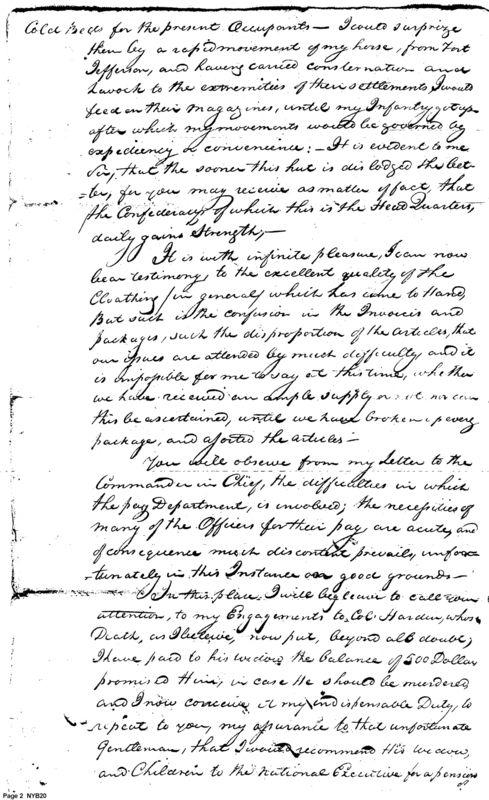 Cold Beds for the present Occupants — I could surprize
them by a rapid movement of my horse, from Fort
Jefferson, and having carried consternation and
havock to the extremities of their settlements I would
feed on their magazines, until my Infantry got up
after which my movements would be governed by
expediency or convenience: — It is evident to me
Sir, that the sooner this hive is dislodged the bet-
-ter, for you may receive as matter of fact, that
the Confederacy of which this is the Head Quarters,
daily gains Strength, —
It is with infinite pleasure, I can now
bear testimony to the excellent quality of the
Cloathing (in general) which has come to Hand,
But such is the confusion in the Invoices and
packages, such the disproportion of the articles, that
our issues are attended by much difficulty and it
is impossible for me to say at this time, whether
we have received an ample supply or not nor can
this be ascertained, until we have broken up every
package, and assorted the articles —
You will observe from my Letter to the
Commander in Chief, the difficulties in which
the pay Department, is involved; the necessities of
many of the Officers for their pay are acute, and
of consequence much discontent prevails, unfor-
-tunately in this Instance on good grounds —
In this place I will beg leave to call your
attention, to my Engagements to Col. Hardin, whose
Death, as I believe, now put, beyond all doubt;
I have paid to his widow the balance of 500 Dollars
promised Him, in case He should be murdered
and I now conceive it my indispensable Duty, to
repeat to you, my assurance to that unfortunate
Gentleman, that I would recommend His widow,
and Children to the National Executive for a pension
Page 2 NYB20